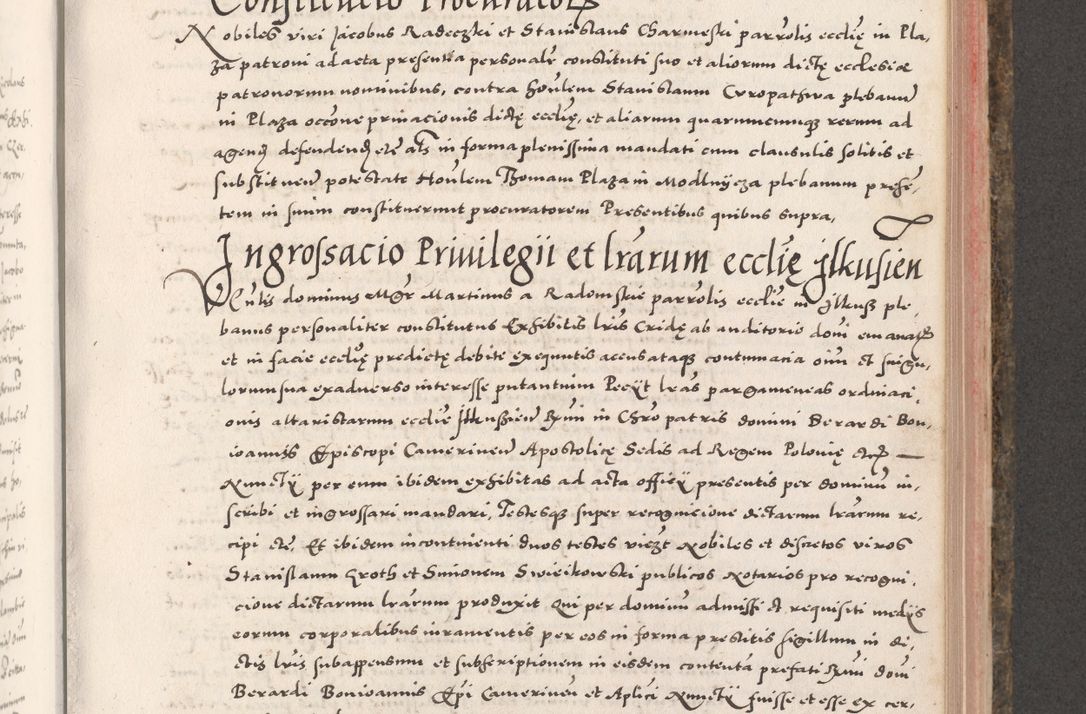 Constitucio Procuratoris
Nobiles viri Jacobus Radeczki et Stanislaus Charmeski parrolis ecclie in Pla,
za patroni ad acta presentia personalr constituti suo et aliorum dictę ecclesiæ
patronorum nominibus, contra honlem Stanislaum Curopathwa plebanum
in Plaza occone priuacionis dictę ecclię, et aliarum quarumcumque rerum ad
agend defendend etc als in forma plenissima mandati cum clausulis solitis et
substituen potestate Honlem Thomam Plaza in Modlnycza plebanum prese,
tem in suum constituerunt procuratorem Presentibus quibus supra,
Ingrossacio Priuilegii et lrarum ecclię Jlkusien
dominus Mgr Martinus a Radomskie parrolis ecclie in Jlkusz ple,
banus personaliter constitutus Exhibitis lris Cridę ab auditorio domi emanatis
et in facie ecclię predictę debite exequutis accusataque contumacia oium et singu,
lorum sua ex aduerso interesse putantium Peciit lras pargameneas ordinaci,
onis altaristarum ecclie Jlkussien Rmi in Chro patris domini Berardi Bon,
ioannis Episcopi Camerinen Apostolicę Sedis ad Regem Polonię etc —
Nunctii per eum ibidem exhibitas ad acta officii presentis per dominum in,
scribi et ingrossari mandari, Testesque super recognicione dictarum lrarum re,
cipi etc, Et ibidem incontinenti duos testes vidzt Nobiles et discretos viros
Stanislaum Groth et Simonem Swieikowski publicos Notarios pro recogni,
cione dictarum lrarum produxit Qui per dominum admissi et requisiti mediis
eorum corporalibus iuramentis per eos in forma prestitis sigillum in di,
ctis lris subappensum et subscriptionem in eisdem contenta prefati Rmi domi
Berardi Bonioannis Epi Camerinen et Aplici Nunctii fuisse et esse ex cer,